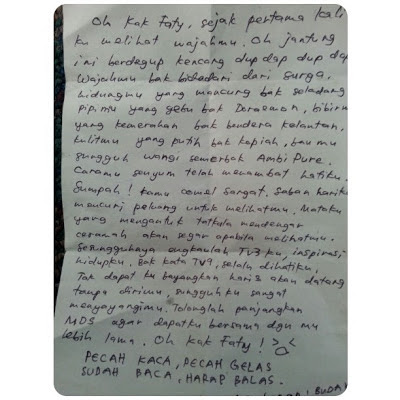 Oh Kak Faty, sejak pertama kali
ku melihat wajahmu. Oh jantung
ini berdegup kencang dup dap dup dap
Wajahmu bak bidadari dari surga,
hidungmu yang mancung bak seladang
pipimu yang gebu bak Doraemon, bibirmu
yang kemerahan bak bendera kelantan,
kulitmu yang putih bak kapiah, bau mu
sungguh wangi semerbak Ambi Pure.
Caramu senyum telah menambat hatiku.
Sumpah! kamu comel sangat, Saban hariku
mencuri peluang untuk melihatmu. Mataku
yang mengantuk tatkala mendengar
ceramah akan segar apabila melihatmu.
Sesungguhnya engkaulah TV3 ku, inspirasi
hidupku. Bak kata TV9, selalu dihatiku,
Tak dapat ku bayangkan hari2 akan datang
tanpa dirimu, sungguh ku sangat
menyayangimu. Tolonglah panjangkan
MDS agar dapatku bersama dgn mu
lebih lama. Oh Kak Faty!
PECAH KACA, PECAH GELAS
SUDAH BACA, HARAP BALAS.